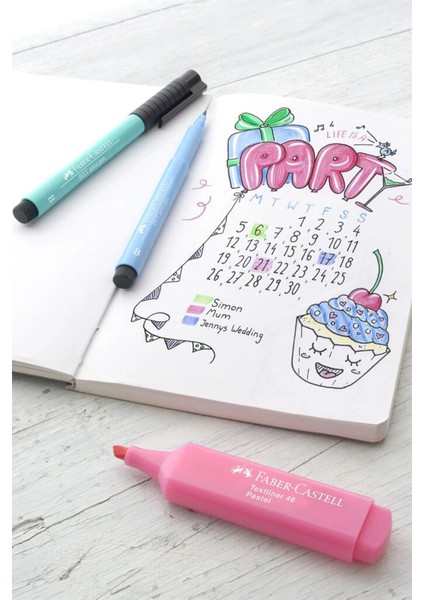 LIFE IS A
PARTY
M T W T F S S
1, 2, 3, 4,
5, 6, 7, 8, 9, 10, 11,
12, 13, 14, 15, 16, 17, 18
19, 20, 21, 22, 23, 24, 25
26, 27, 28, 29, 30.
Simon
Mum
Jennys Wedding
FABER-CASTELL
B
FABER-CASTELL
B
FABER-CASTELL
Textliner 46
Pastel